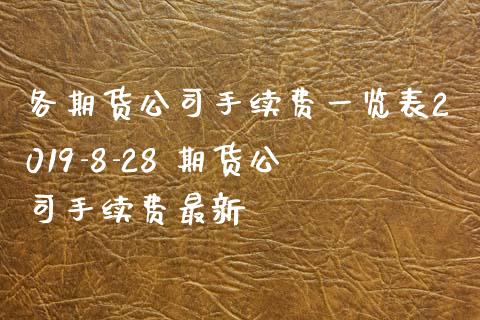 各期货公司手续费一览表2
019-8-28 期货公
司手续费最新